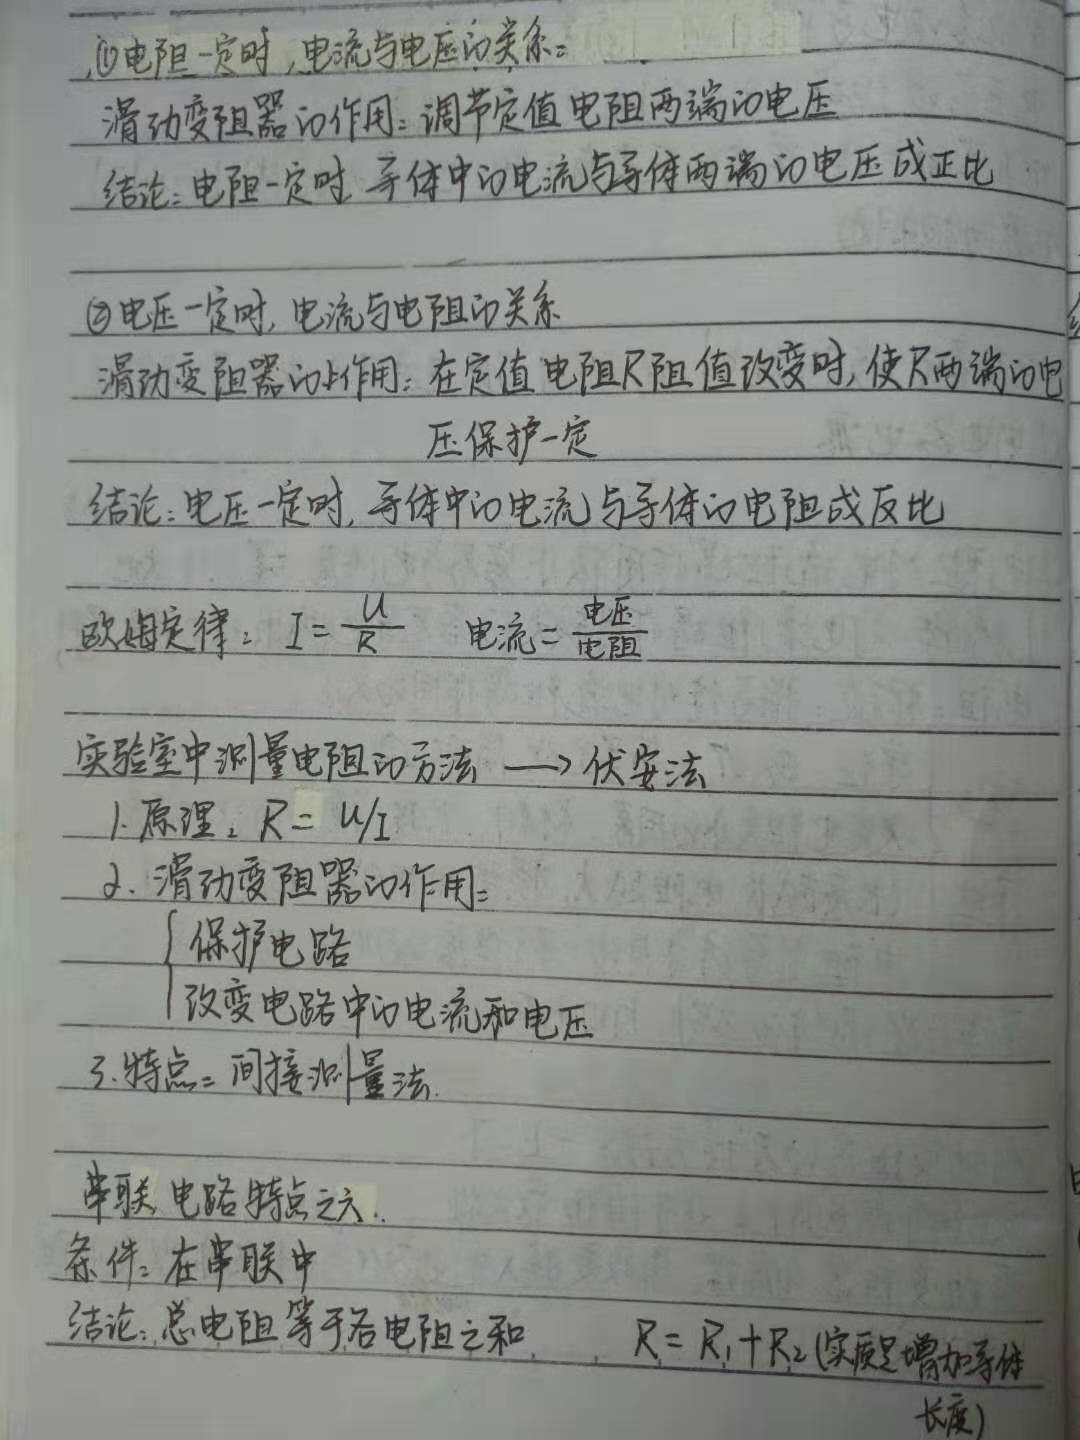 ①电阻一定时,电流与电压的关系:
滑动变阻器的作用:调节定值电阻两端的电压
结论:电阻一定时,导体中的电流与导体两端的电压成正比
②电压一定时,电流与电阻的关系
滑动变阻器的作用:在定值电阻R阻值改变时,使R两端的电
压保护一定
结论:电压一定时,导体中的电流与导体的电阻成反比
欧姆定律:I=U/R 电流=电压/电阻
实验室中测量电阻的方法→伏安法
1.原理:R=U/I
2.滑动变阻器的作用:
保护电路
改变电路中的电流和电压
3.特点:间接测量法.
串联电路特点之六.
条件:在串联中
结论:总电阻等于各电阻之和 R=R₁+R₂(实质是增加导体
长度)